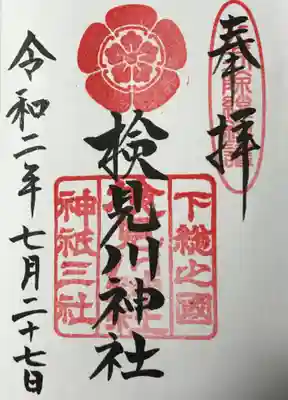 奉拝
下総之國
検見川神社
神祇三社
令和二年七月二十七日